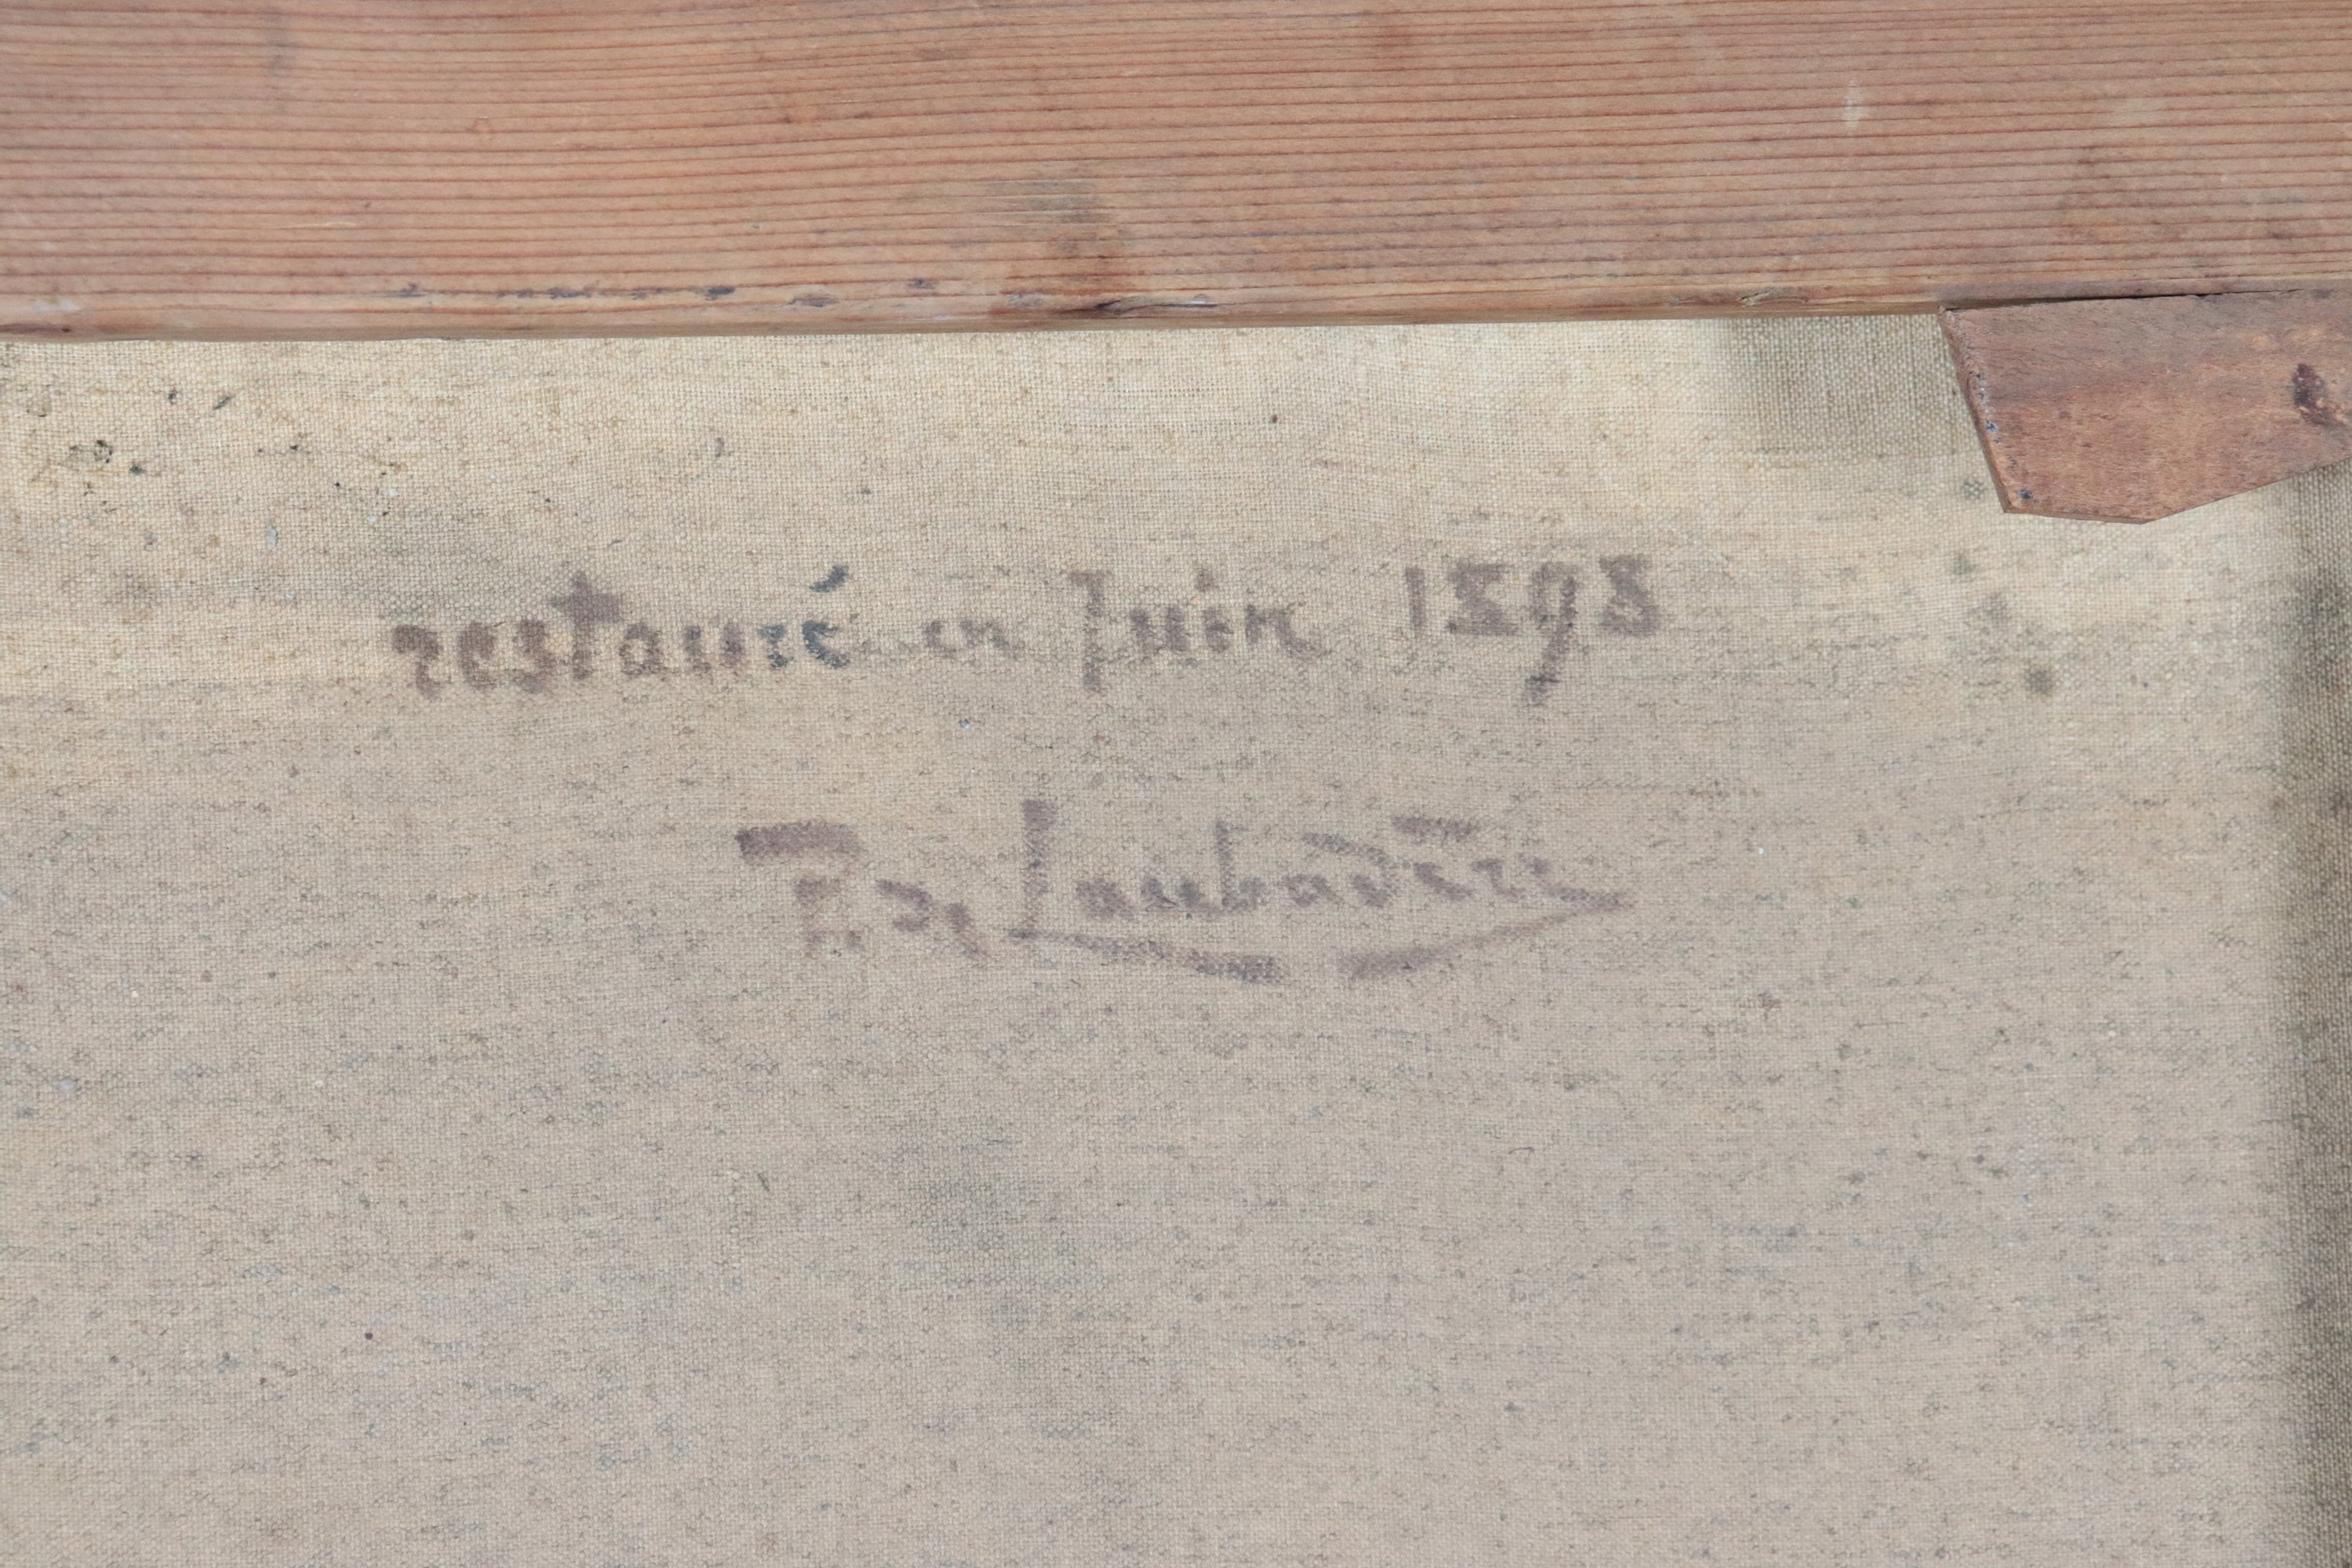 restauré en Juin 1898
P. de Laubadère